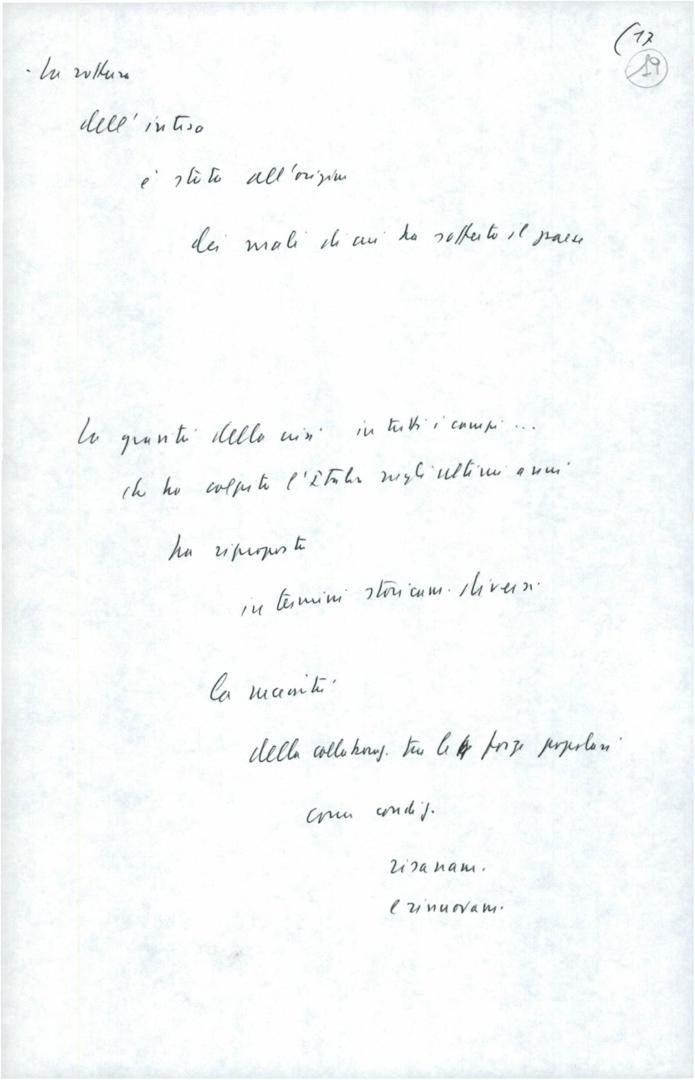 (17
19
- La rottura
dell'intesa
è stata all'origine
dei mali di cui ha sofferto il paese
La gravità della crisi in tutti i campi ...
che ha colpito l'Italia negli ultimi anni
ha riproposto
in termini storicam. diversi
la necessità
della collaboraz. tra le forze popolari
come condiz.
risanam.
e rinnovam.